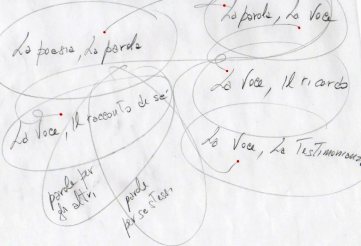 La parola, La Voce
La poesia, La parola
La Voce, Il ricordo
La Voce, Il racconto di sé
La Voce, La Testimonianza
parole per
gli altri
parole
per se stessi